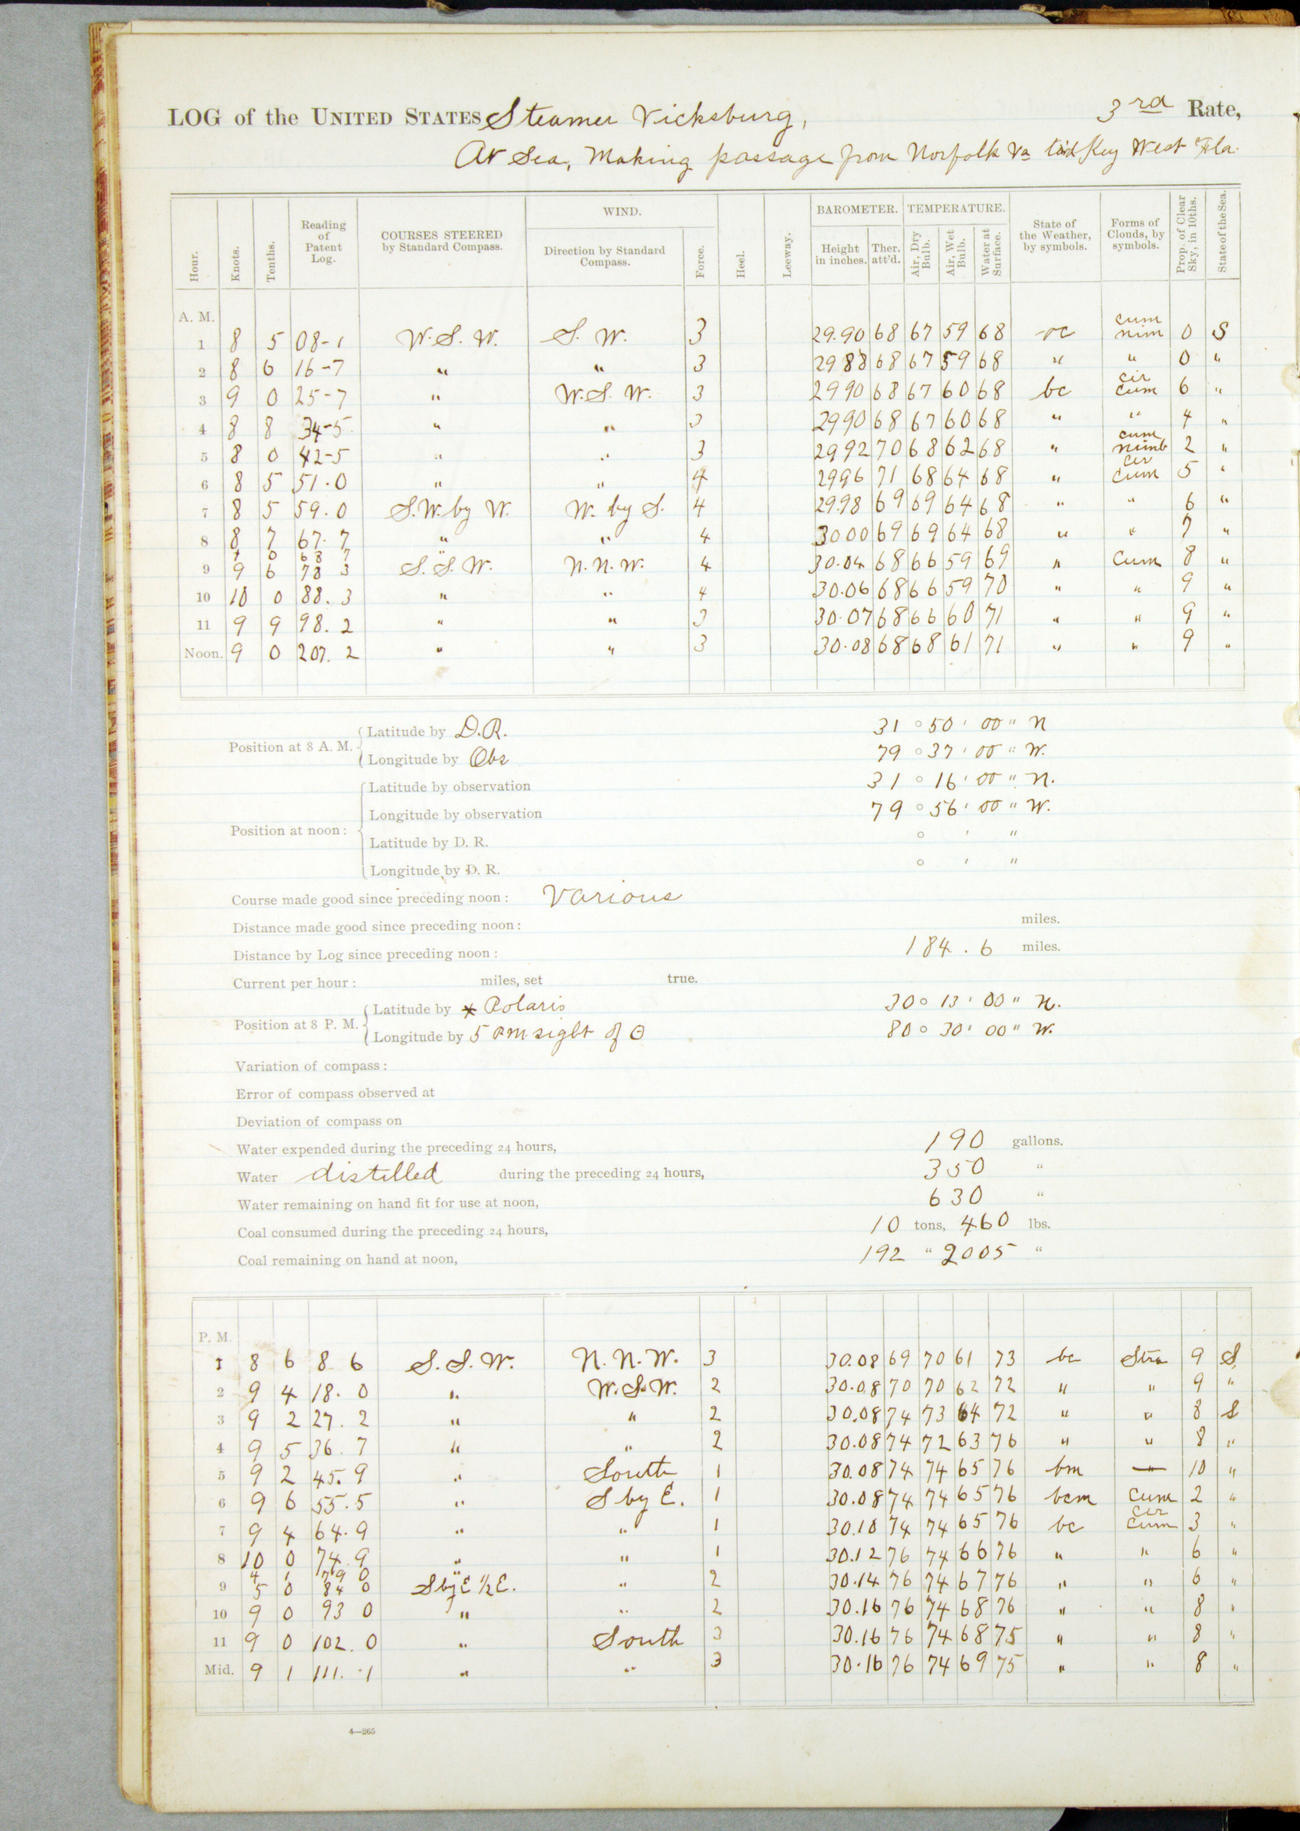 LOG of the UNITED STATES Steamer Vicksburg, 3rd Rate,
At Sea, Making passage from Norfolk Va to Key West Fla.
Hour. Knots. Tenths. Reading of Patent Log. COURSES STEERED by Standard Compass. WIND. Direction by Standard Compass. Force. Heel. Leeway. BAROMETER. Height in inches. Ther. att'd. TEMPERATURE. Air, Dry Bulb. Air, Wet Bulb. Water at Surface. State of the Weather, by symbols. Forms of Clouds, by symbols. Prop. of Clear Sky, in 10ths. State of the Sea.
A. M.
1 8 5 08-1 W.S.W. S.W. 3 29.90 68 67 59 68 oc cum nim 0 S
2 8 6 16-7 " " 3 29 88 68 67 59 68 " " 0 "
3 9 0 25-7 " W.S.W. 3 29 90 68 67 60 68 bc cir cum 6 "
4 8 8 34-5 " " 3 29 90 68 67 60 68 " " 4 "
5 8 0 42-5 " " 3 29 92 70 68 62 68 " cum nimb 2 "
6 8 5 51.0 " " 4 29 96 71 68 64 68 " cir cum 5 "
7 8 5 59.0 S.W. by W. W. by S. 4 29.98 69 69 64 68 " " 6 "
8 8 7 67.7 " " 4 30 00 69 69 64 68 " " 7 "
1 0 68 7 "
9 9 6 78 3 S.S.W. N.N.W. 4 30.04 68 66 59 69 " Cum 8 "
10 10 0 88.3 " " 4 30.06 68 66 59 70 " " 9 "
11 9 9 98.2 " " 3 30.07 68 66 60 71 " " 9 "
Noon. 9 0 207.2 " " 3 30.08 68 68 61 71 " " 9 "
Position at 8 A. M. Latitude by D.R. 31 ° 50 ' 00 " N
Longitude by Obs 79 ° 37 ' 00 " W.
Position at noon: Latitude by observation 31 ° 16 ' 00 " N.
Longitude by observation 79 ° 56 ' 00 " W.
Latitude by D. R. ° ' "
Longitude by D. R. ° ' "
Course made good since preceding noon: Various
Distance made good since preceding noon: miles.
Distance by Log since preceding noon: 184.6 miles.
Current per hour: miles, set true.
Position at 8 P. M. Latitude by * Polaris 30 ° 13 ' 00 " N.
Longitude by 5 PM sight of ⊙ 80 ° 30 ' 00 " W.
Variation of compass:
Error of compass observed at
Deviation of compass on
Water expended during the preceding 24 hours, 190 gallons.
Water distilled during the preceding 24 hours, 350 "
Water remaining on hand fit for use at noon, 630 "
Coal consumed during the preceding 24 hours, 10 tons, 460 lbs.
Coal remaining on hand at noon, 192 " 2005 "
P. M.
1 8 6 8 6 S.S.W. N.N.W. 3 30.08 69 70 61 73 bc Stra 9 S
2 9 4 18.0 " W.S.W. 2 30.08 70 70 62 72 " " 9 "
3 9 2 27.2 " " 2 30.08 74 73 64 72 " " 8 S
4 9 5 36 7 " " 2 30.08 74 72 63 76 " " 8 "
5 9 2 45.9 " South 1 30.08 74 74 65 76 bm — 10 "
6 9 6 55.5 " S by E. 1 30.08 74 74 65 76 bcm Cum 2 "
7 9 4 64.9 " " 1 30.10 74 74 65 76 bc cir cum 3 "
8 10 0 74.9 " " 1 30.12 76 74 66 76 " " 6 "
4 1 79 0 "
9 5 0 84 0 S by E ½ E. " 2 30.14 76 74 67 76 " " 6 "
10 9 0 93 0 " " 2 30.16 76 74 68 76 " " 8 "
11 9 0 102.0 " South 3 30.16 76 74 68 75 " " 8 "
Mid. 9 1 111.1 " " 3 30.16 76 74 69 75 " " 8 "
4—265